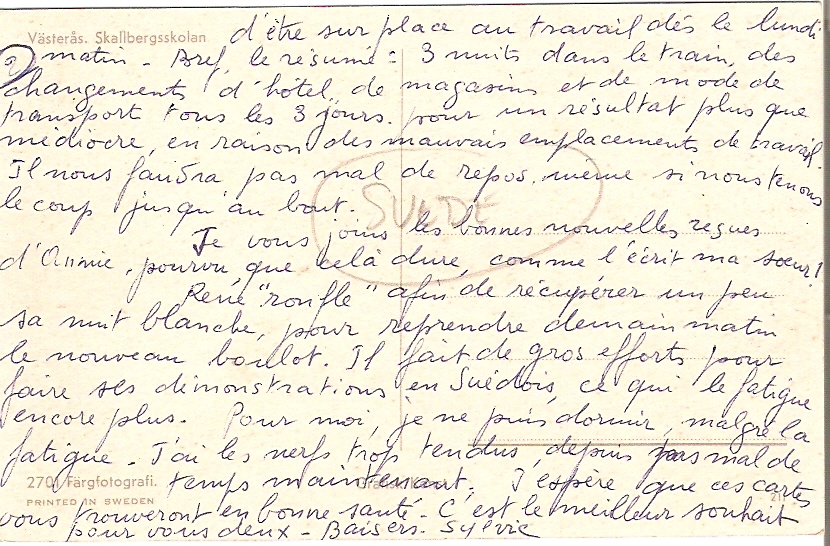 Västerås. Skallbergsskolan
d'être sur place au travail dés le lundi
2) matin - Bref, le résumé = 3 nuits dans le train, des
changements d'hôtel, de magasins et de mode de
transport tous les 3 jours. pour un résultat plus que
médiocre, en raison des mauvais emplacements de travail.
Il nous faudra pas mal de repos. même si nous tenons
le coup jusqu'au bout.
SUEDE
Je vous joins les bonnes nouvelles reçues
d'Annie, pourvu que celà dure, comme l'écrit ma sœur!
René "ronfle" afin de récupérer un peu
sa nuit blanche, pour reprendre demain matin
le nouveau boulot. Il fait de gros efforts pour
faire ses démonstrations en Suédois, ce qui le fatigue
encore plus. Pour moi, je ne puis dormir, malgré la
fatigue - J'ai les nerfs trop tendus, depuis pas mal de
2701 Färgfotografi.
temps maintenant. J'espère que ces cartes
PRINTED IN SWEDEN
vous trouveront en bonne santé - C'est le meilleur souhait
pour vous deux - Baisers. Sylvie